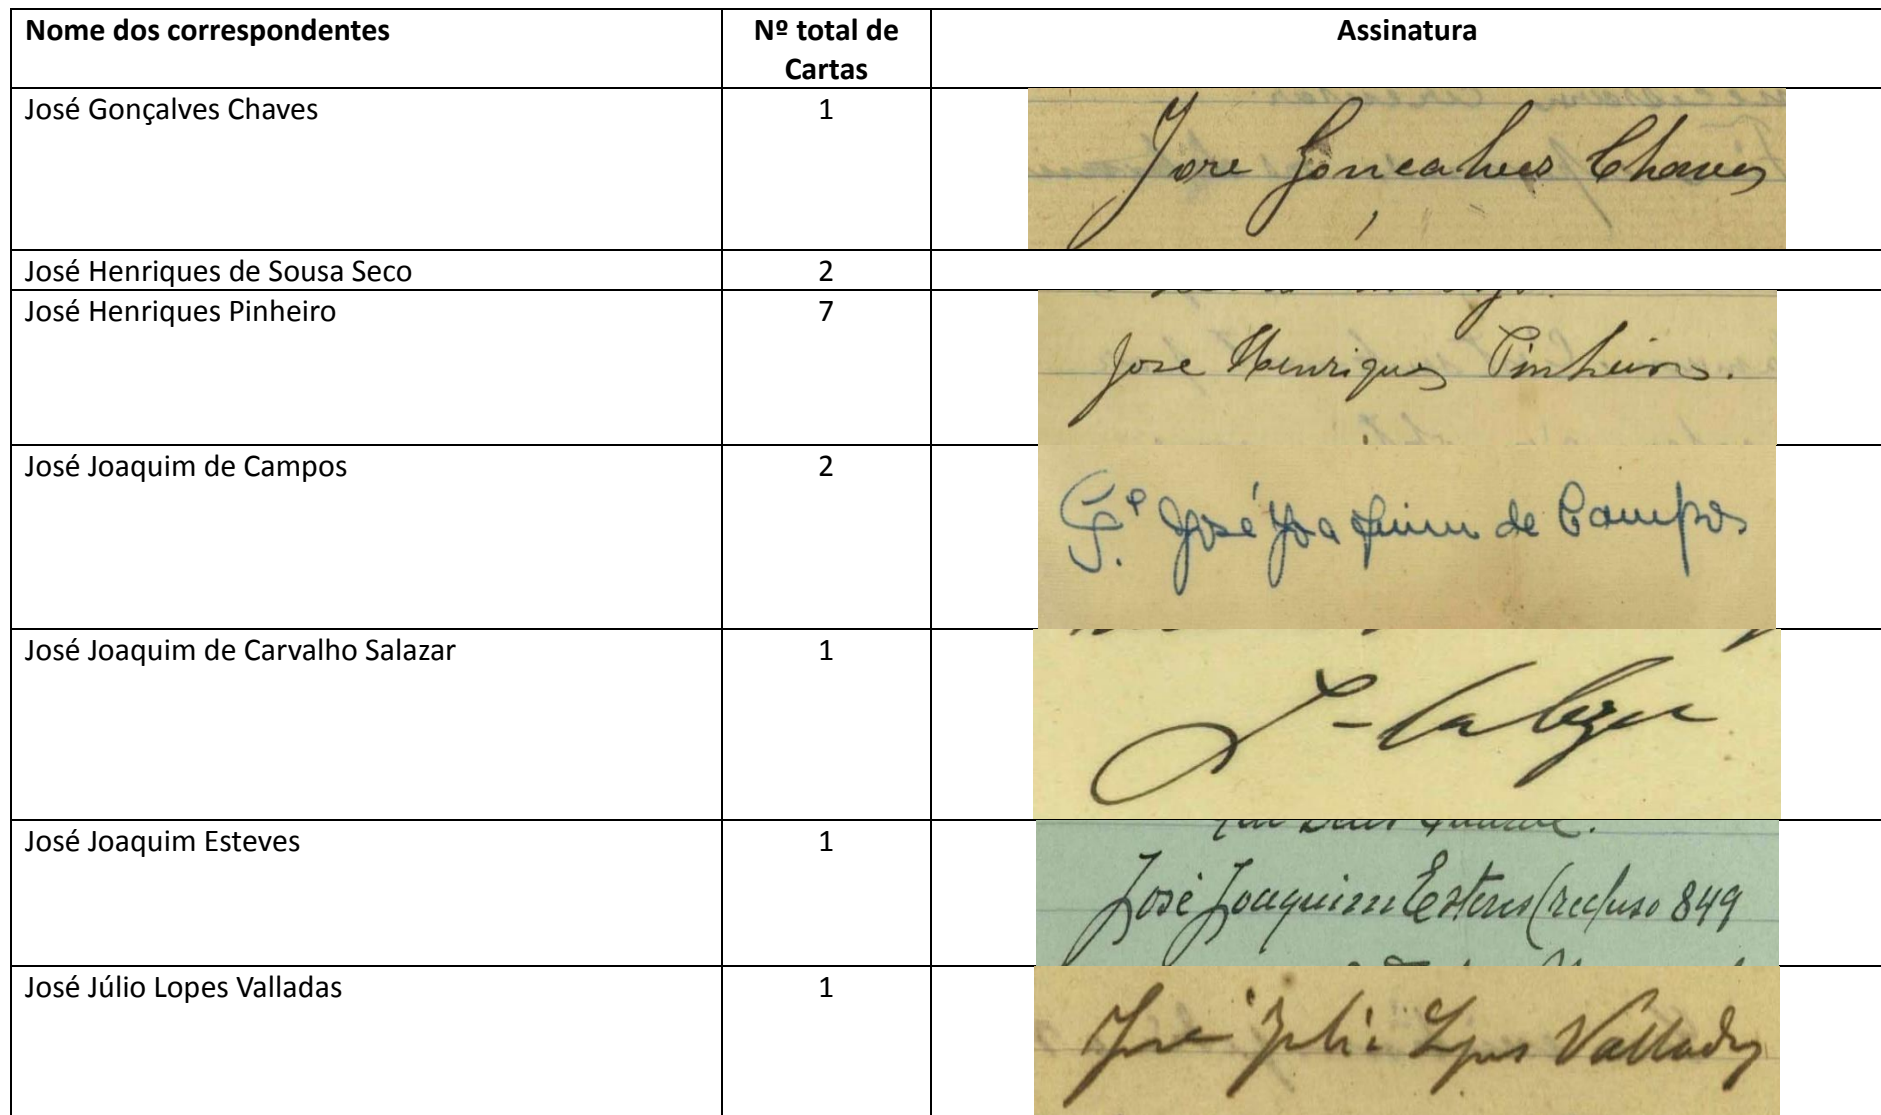 Nome dos correspondentes Nº total de Cartas Assinatura
José Gonçalves Chaves 1 José Goncalves Chaves
José Henriques de Sousa Seco 2
José Henriques Pinheiro 7 José Henriques Pinheiro.
José Joaquim de Campos 2 José Joaquim de Campos
José Joaquim de Carvalho Salazar 1
José Joaquim Esteves 1 José Joaquim Esteves (recluso 849
José Júlio Lopes Valladas 1 José Julio Lopes Valladas